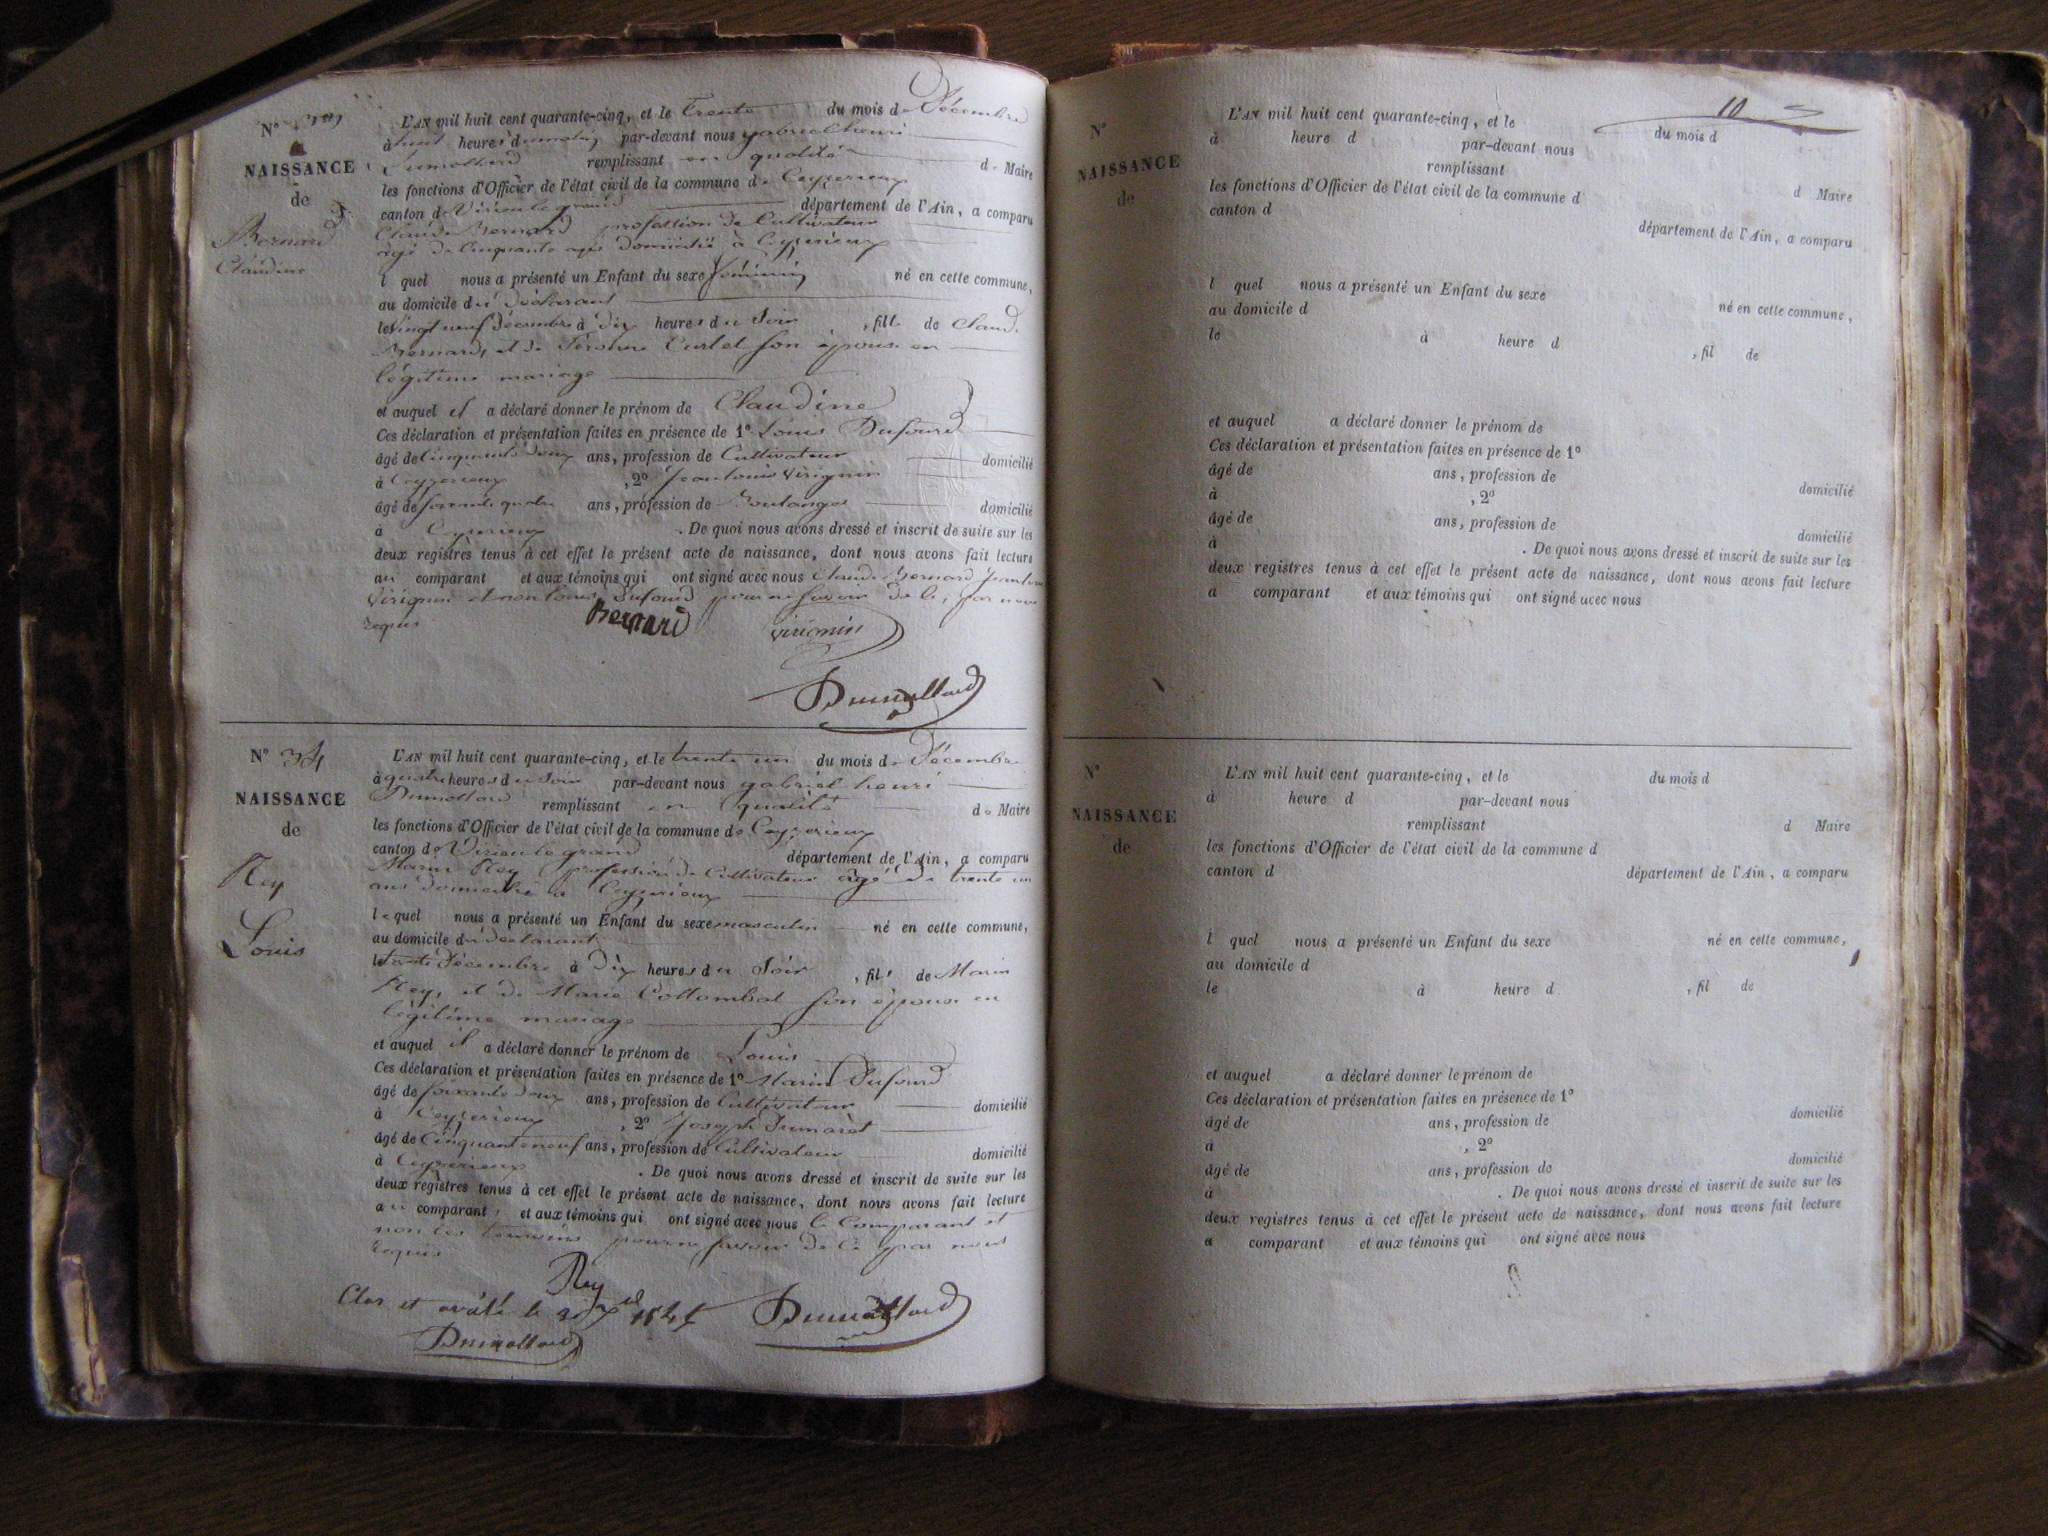 N°
NAISSANCE
de
Bernard
Claudine
L'AN mil huit cent quarante-cinq, et le Trente du mois de Décembre
à huit heures du matin par-devant nous gabriel henri
Dumollard remplissant en qualité de Maire
les fonctions d'Officier de l'état civil de la commune de Ceyzerieux
canton de Virieu le grand département de l'Ain, a comparu
Claude Bernard profession de Cultivateur
âgé de Cinquante ans domicilié à Ceyzerieux
l quel nous a présenté un Enfant du sexe féminin né en cette commune,
au domicile du déclarant
le vingt neuf Décembre à Dix heures du Soir, fille de Claude
Bernard, et de Curlet son épouse en
légitime mariage
et auquel il a déclaré donner le prénom de Claudine
Ces déclaration et présentation faites en présence de 1° Louis Dufourd
âgé de Cinquante deux ans, profession de Cultivateur domicilié
à Ceyzerieux, 2° Jean louis Virignin
âgé de quatre ans, profession de Boulanger domicilié
à Ceyzerieux. De quoi nous avons dressé et inscrit de suite sur les
deux registres tenus à cet effet le présent acte de naissance, dont nous avons fait lecture
au comparant et aux témoins qui ont signé avec nous Claude Bernard Jean louis
Virignin et non Louis Dufourd pour ne savoir de le, par nous
requis
Bernard Virignin
Dumollard
N° 34
NAISSANCE
de
Rey
Louis
L'AN mil huit cent quarante-cinq, et le trente un du mois de Décembre
à quatre heures du Soir par-devant nous gabriel henri
Dumollard remplissant en qualité de Maire
les fonctions d'Officier de l'état civil de la commune de Ceyzerieux
canton de Virieu le grand département de l'Ain, a comparu
Marin Rey profession de Cultivateur âgé de trente un
ans domicilié à Ceyzerieux
le quel nous a présenté un Enfant du sexe masculin né en cette commune,
au domicile du déclarant
le trente Décembre à Dix heures du Soir, fils de Marin
Rey, et de Marie Collombat son épouse en
légitime mariage
et auquel il a déclaré donner le prénom de Louis
Ces déclaration et présentation faites en présence de 1° Marin Dufourd
âgé de soixante deux ans, profession de Cultivateur domicilié
à Ceyzerieux, 2° Joseph Dumarest
âgé de Cinquante neuf ans, profession de Cultivateur domicilié
à Ceyzerieux. De quoi nous avons dressé et inscrit de suite sur les
deux registres tenus à cet effet le présent acte de naissance, dont nous avons fait lecture
au comparant, et aux témoins qui ont signé avec nous le Comparant et
non les temoins pour ne savoir de Ce par nous
requis
Rey
Clos et arrêté le 31 1845 Dumollard
Dumollard
10
N°
NAISSANCE
de
L'AN mil huit cent quarante-cinq, et le du mois d
à heure d par-devant nous
remplissant d Maire
les fonctions d'Officier de l'état civil de la commune d
canton d département de l'Ain, a comparu
l quel nous a présenté un Enfant du sexe né en cette commune,
au domicile d
le à heure d, fil de
et auquel a déclaré donner le prénom de
Ces déclaration et présentation faites en présence de 1°
âgé de ans, profession de domicilié
à, 2°
âgé de ans, profession de domicilié
à. De quoi nous avons dressé et inscrit de suite sur les
deux registres tenus à cet effet le présent acte de naissance, dont nous avons fait lecture
a comparant et aux témoins qui ont signé avec nous
N°
NAISSANCE
de
L'AN mil huit cent quarante-cinq, et le du mois d
à heure d par-devant nous
remplissant d Maire
les fonctions d'Officier de l'état civil de la commune d
canton d département de l'Ain, a comparu
l quel nous a présenté un Enfant du sexe né en cette commune,
au domicile d
le à heure d, fil de
et auquel a déclaré donner le prénom de
Ces déclaration et présentation faites en présence de 1°
âgé de ans, profession de domicilié
à, 2°
âgé de ans, profession de domicilié
à. De quoi nous avons dressé et inscrit de suite sur les
deux registres tenus à cet effet le présent acte de naissance, dont nous avons fait lecture
a comparant et aux témoins qui ont signé avec nous